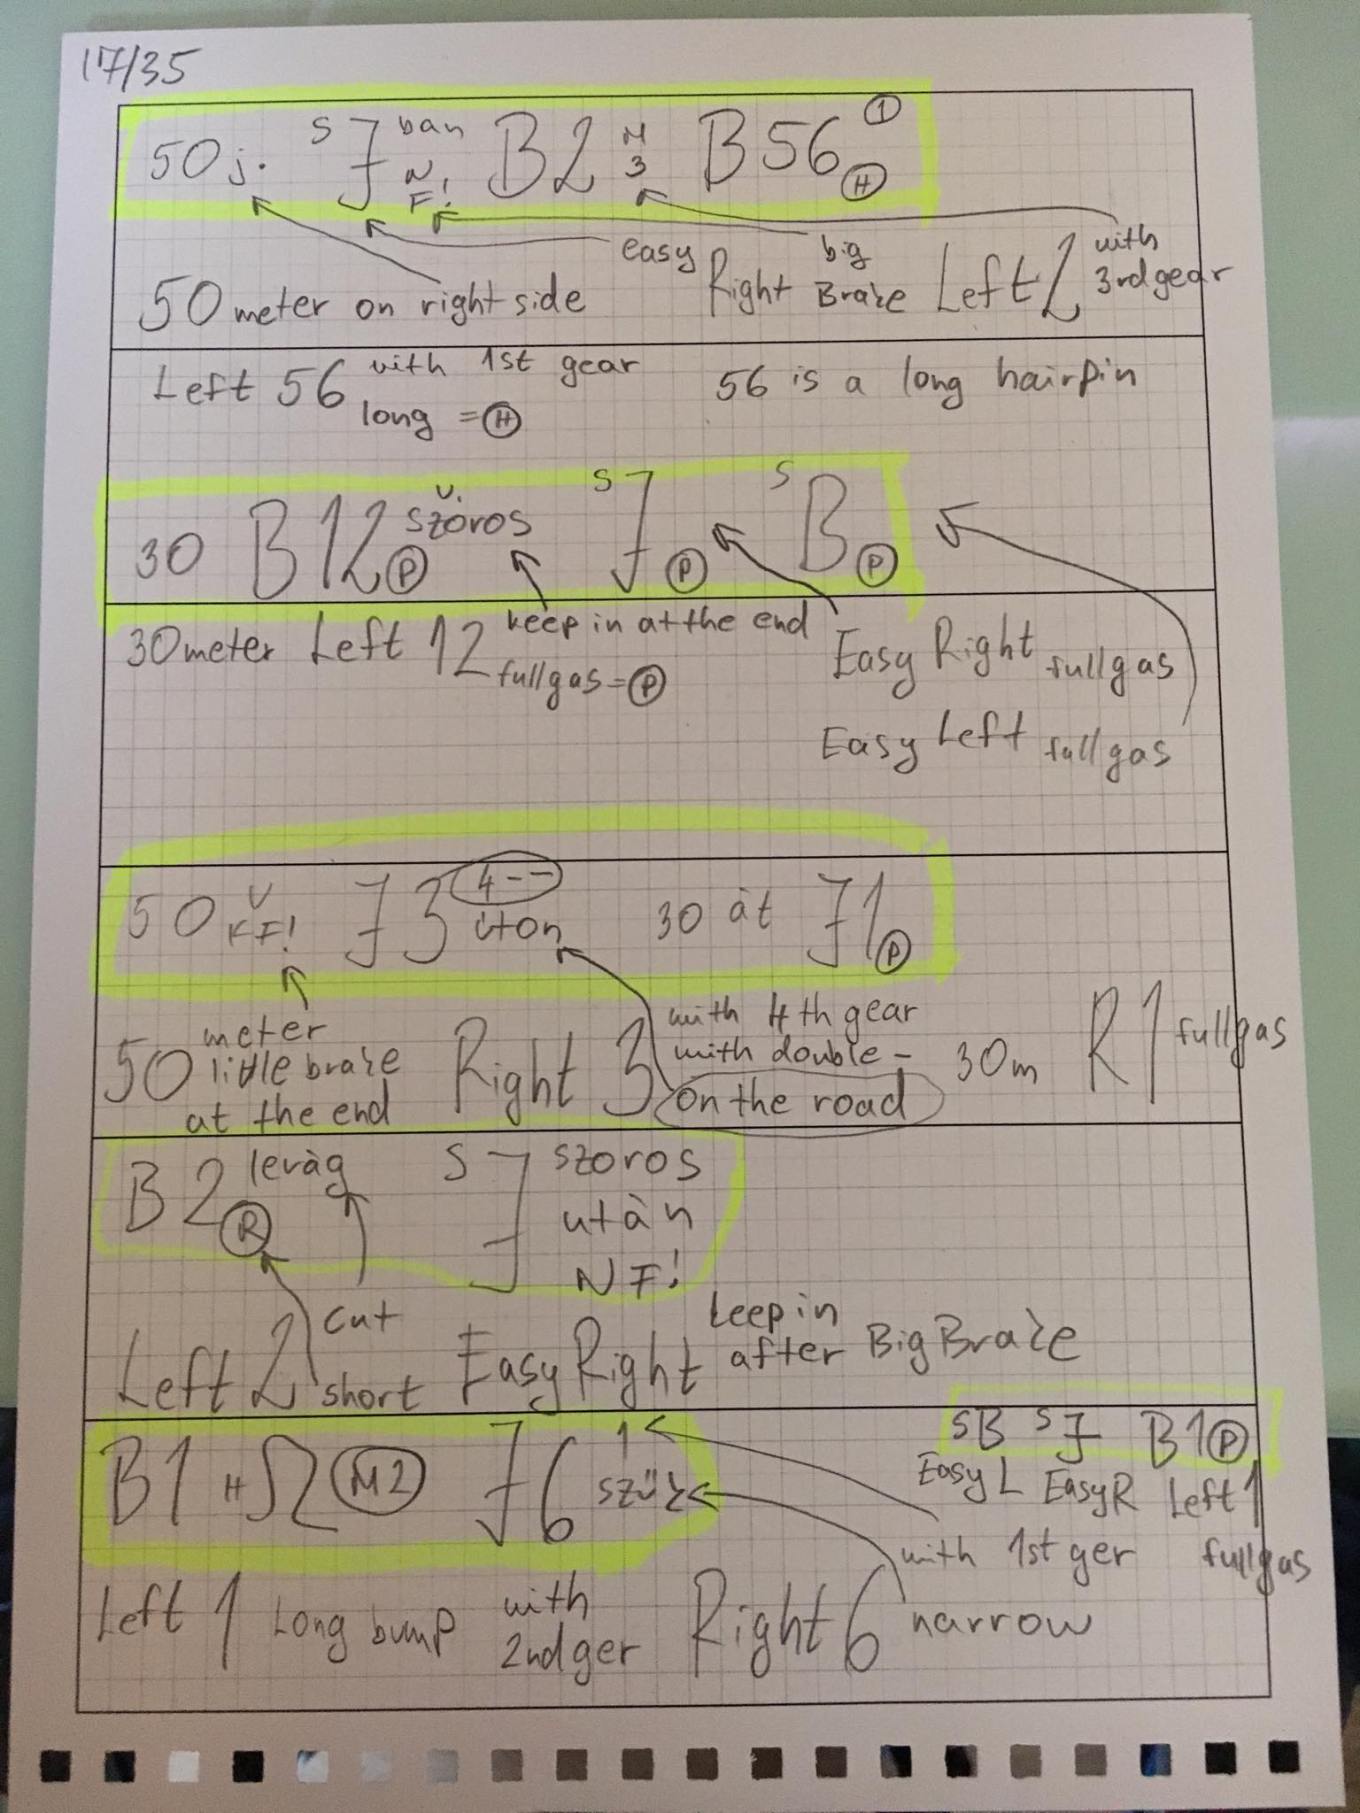 17/35
50 j. S J ban N F! B2 M 3 B56 1 H
easy Right big Brake Left 2 with 3rd gear
50 meter on right side
Left 56 with 1st gear long = H 56 is a long hairpin
30 B12 P v. szoros S J P S B P
30 meter Left 12 keep in at the end fullgas = P Easy Right fullgas
Easy Left fullgas
50 v KF! J3 4-- úton 30 át J1 P
50 meter little brake at the end Right 3 with 4th gear with double - on the road 30m R1 fullgas
B2 R levág S J szoros után NF!
Left 2 cut short Easy Right keep in after Big Brake
B1 H M2 J6 1 szűk SB SJ B1 P
Easy L Easy R Left 1 fullgas
with 1st ger
Left 1 Long bump with 2nd ger Right 6 narrow